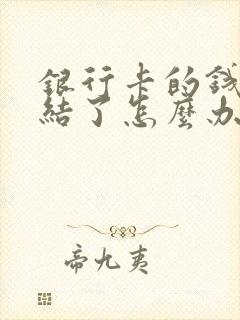 銀行卡的錢
結了怎麼办
帝九夷